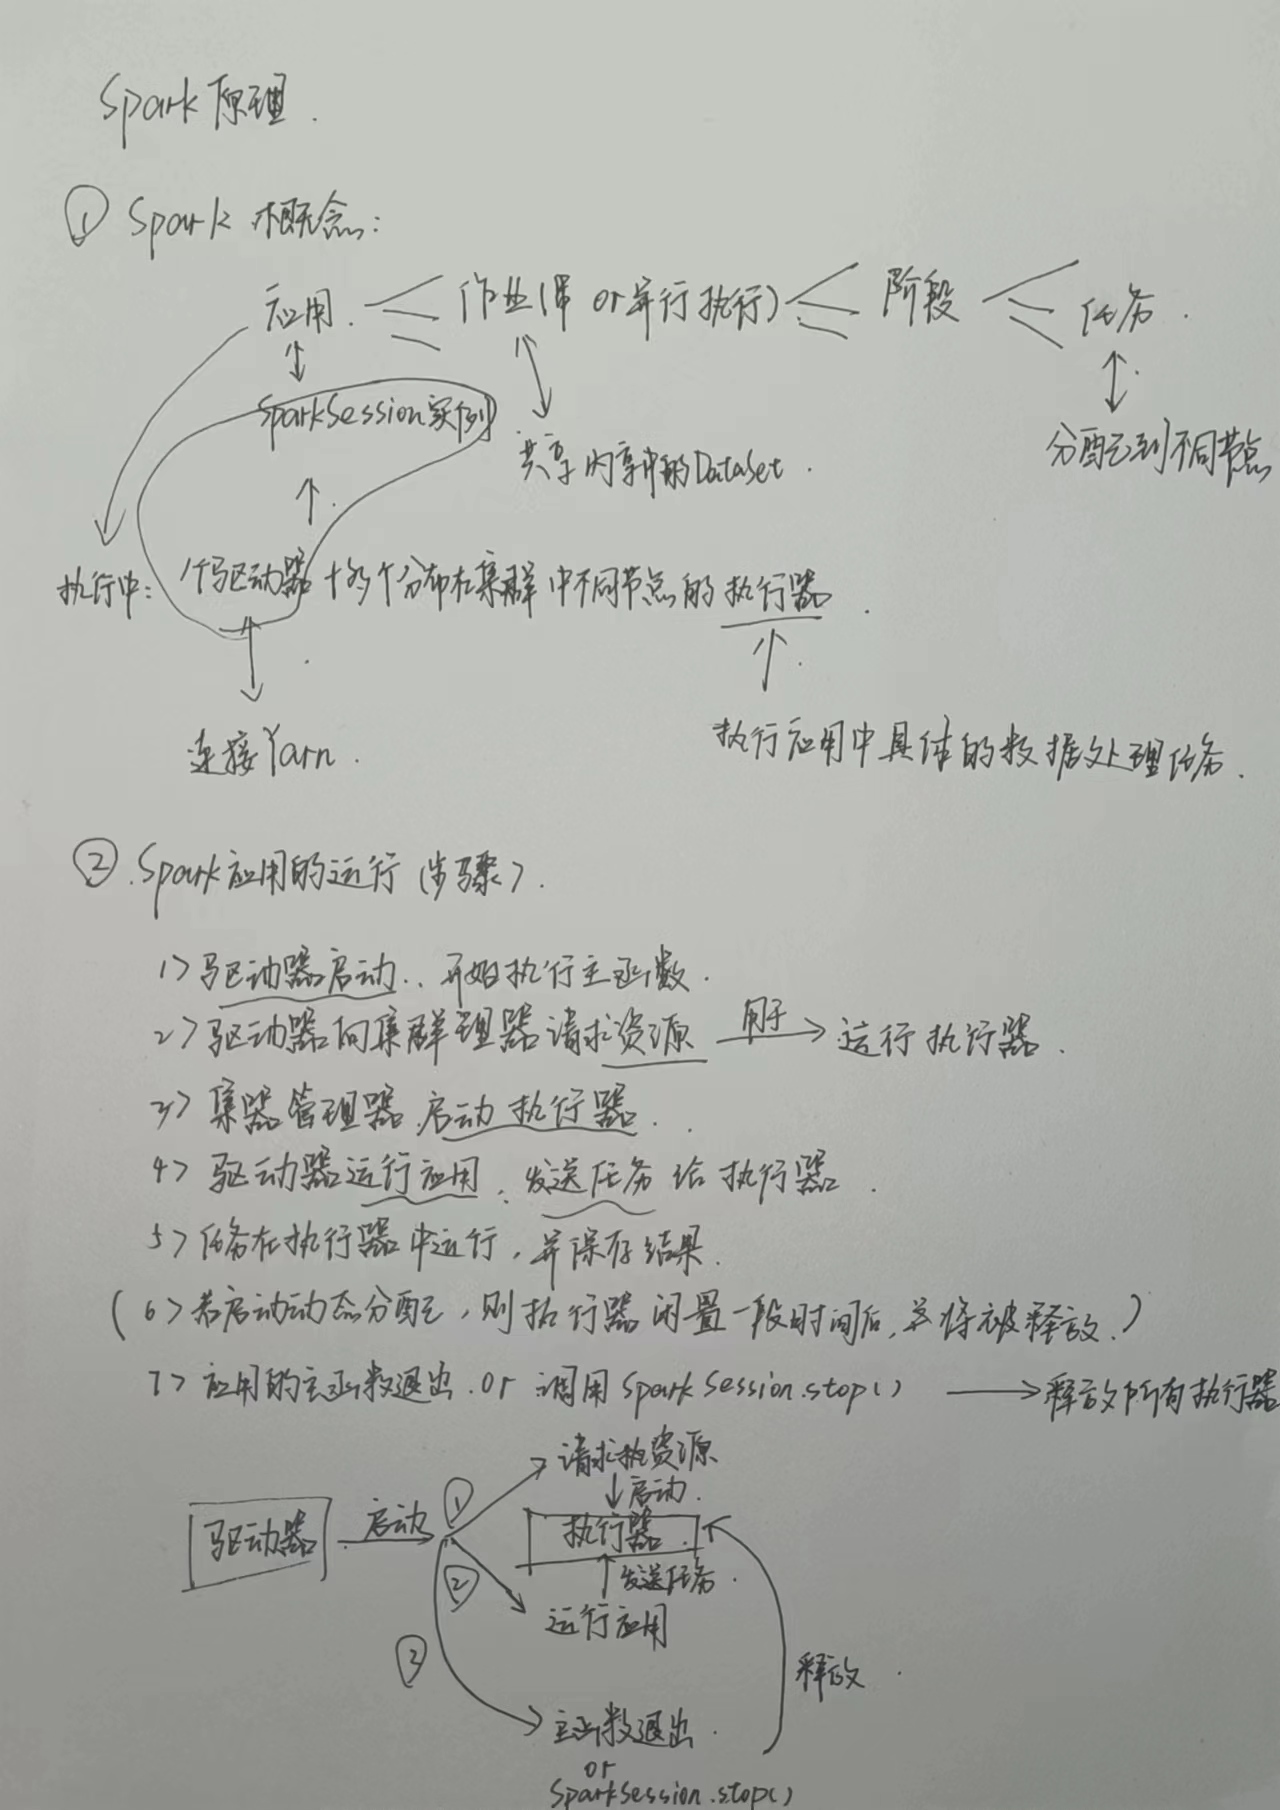 Spark原理.
① Spark 概念:
应用. 作业(串 or 并行执行) 阶段 任务.
SparkSession实例
共享内存中的DataSet.
分配到不同节点
执行中: 1个驱动器+多个分布在集群中不同节点的执行器.
连接Yarn.
执行应用中具体的数据处理任务.
② Spark应用的运行(步骤).
1> 驱动器启动..开始执行主函数.
2> 驱动器向集群理器请求资源 用于 运行执行器.
3> 集器管理器.启动执行器.
4> 驱动器运行应用.发送任务给执行器.
5> 任务在执行器中运行,并保存结果.
(6> 若启动动态分配,则执行器闲置一段时间后,将被释放.)
7> 应用的主函数退出.or 调用SparkSession.stop() 释放所有执行器
请求资源
①
启动.
驱动器 启动 执行器.
② 发送任务.
运行应用
③ 释放.
主函数退出.
or
SparkSession.stop()